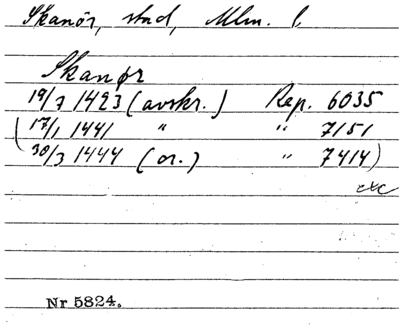 Skanör, stad, Mlm. l.
Skanør
19/7 1423 (avskr.) Rep. 6035
(17/1 1441 " " 7151
30/3 1444 (or.) " 7414)
etc
Nr 5824.